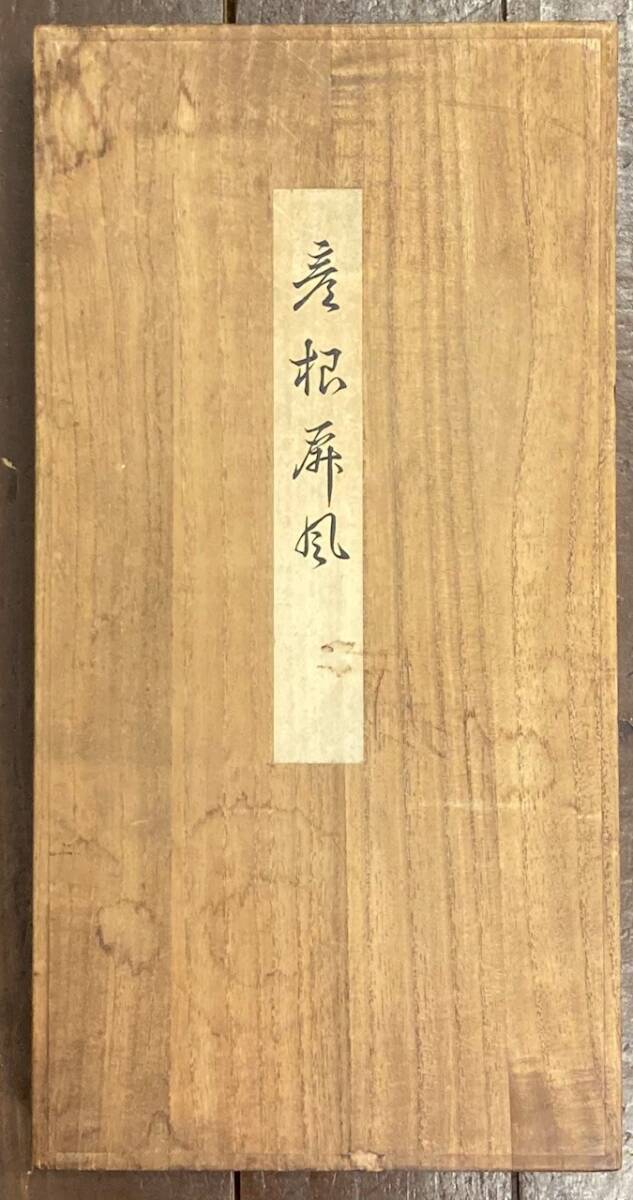 彦根屏風